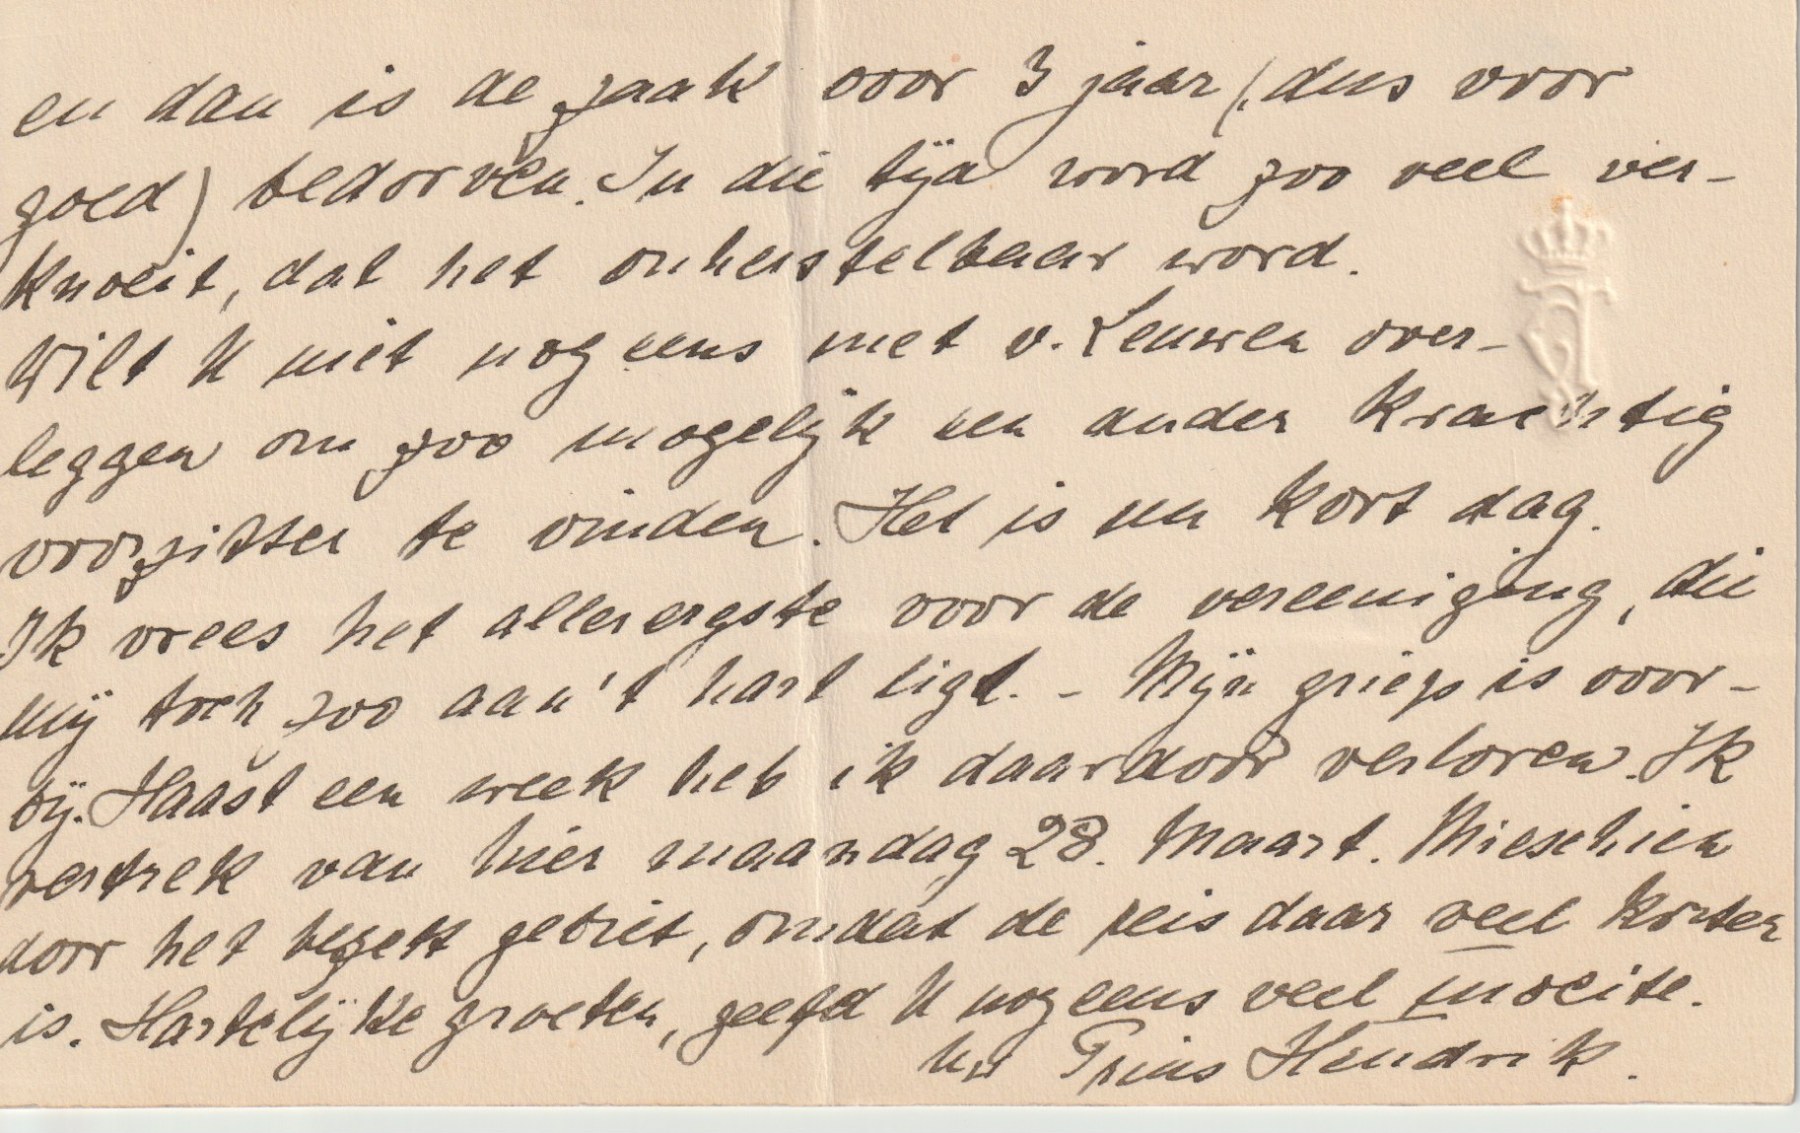 en dan is de zaak voor 3 jaar (dus voor
goed) bedorven. In die tijd word zoo veel ver-
knoeit, dat het onherstelbaar word.
Wilt U niet nog eens met v. Leuwen over-
leggen om zoo mogelijk een ander krachtig
voorzitter te vinden. Het is nu kort dag.
Ik vrees het allerergste voor de vereeniging, die
mij toch zoo aan 't hart ligt. - Mijn griep is voor-
bij. Haast een week heb ik daardoor verloren. Ik
vertrek van hier maandag 28. Maart. Mieschien
door het bezett gebiet, omdat de reis daar veel korter
is. Hartelijke groeten, geefd U nog eens veel moeite.
Uw Prins Hendrik.